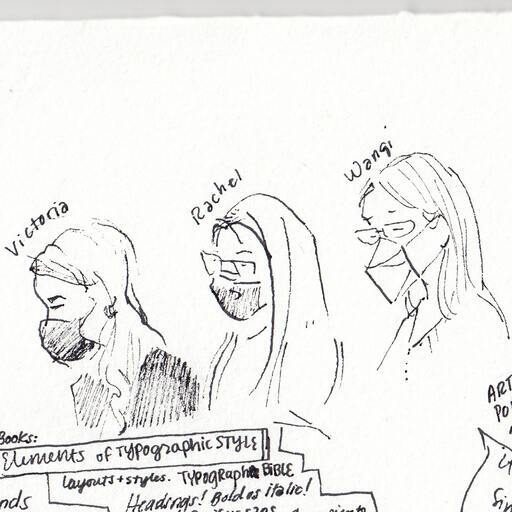 Victoria
Rachel
Wangi
ART
Books:
Elements of TYPOgraphic STYLE
layouts + styles. TYPOGRAPHE BIBLE
nds
Headings! Bold as italic!